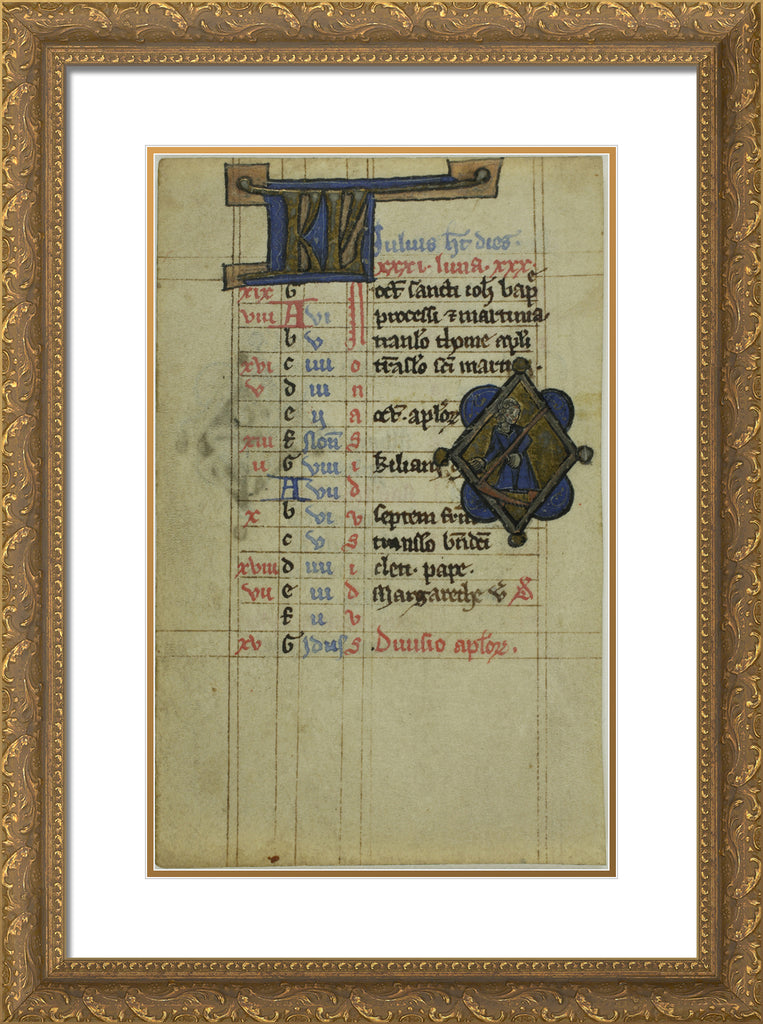 KL
Julius ht dies
xxxi luna xxx
xix G oct sancti ioh bap
viii A vi processi & martinia
b v translo thome apli
xvi c iiii o traslo sci martin
v d iii n
e ii a oct aplor
xiii f Non s
ii G viii i kiliani
A vii d
x b vi v septem frm
c v s translo bndci
xviii d iiii i cleti pape
vii e iii d Margarethe v S
f ii v
xv G Idus s Divisio aplor